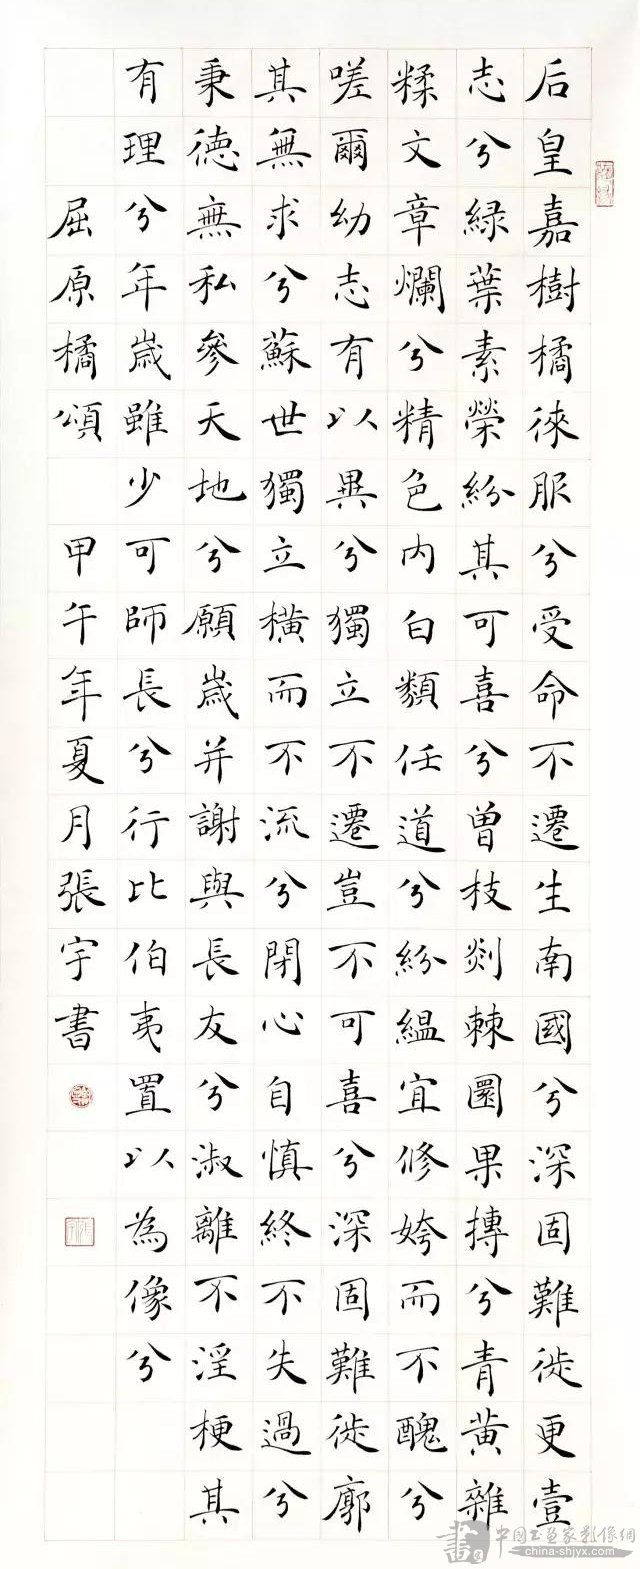 后皇嘉樹橘徠服兮受命不遷生南國兮深固難徙更壹
志兮緑葉素榮紛其可喜兮曾枝剡棘圜果摶兮青黄雜
糅文章爛兮精色内白類任道兮紛緼宜修姱而不醜兮
嗟爾幼志有以異兮獨立不遷豈不可喜兮深固難徙廓
其無求兮蘇世獨立横而不流兮閉心自慎終不失過兮
秉德無私參天地兮願歲并謝與長友兮淑離不淫梗其
有理兮年歲雖少可師長兮行比伯夷置以為像兮
屈原橘頌 甲午年夏月張宇書
china-shjyx.com